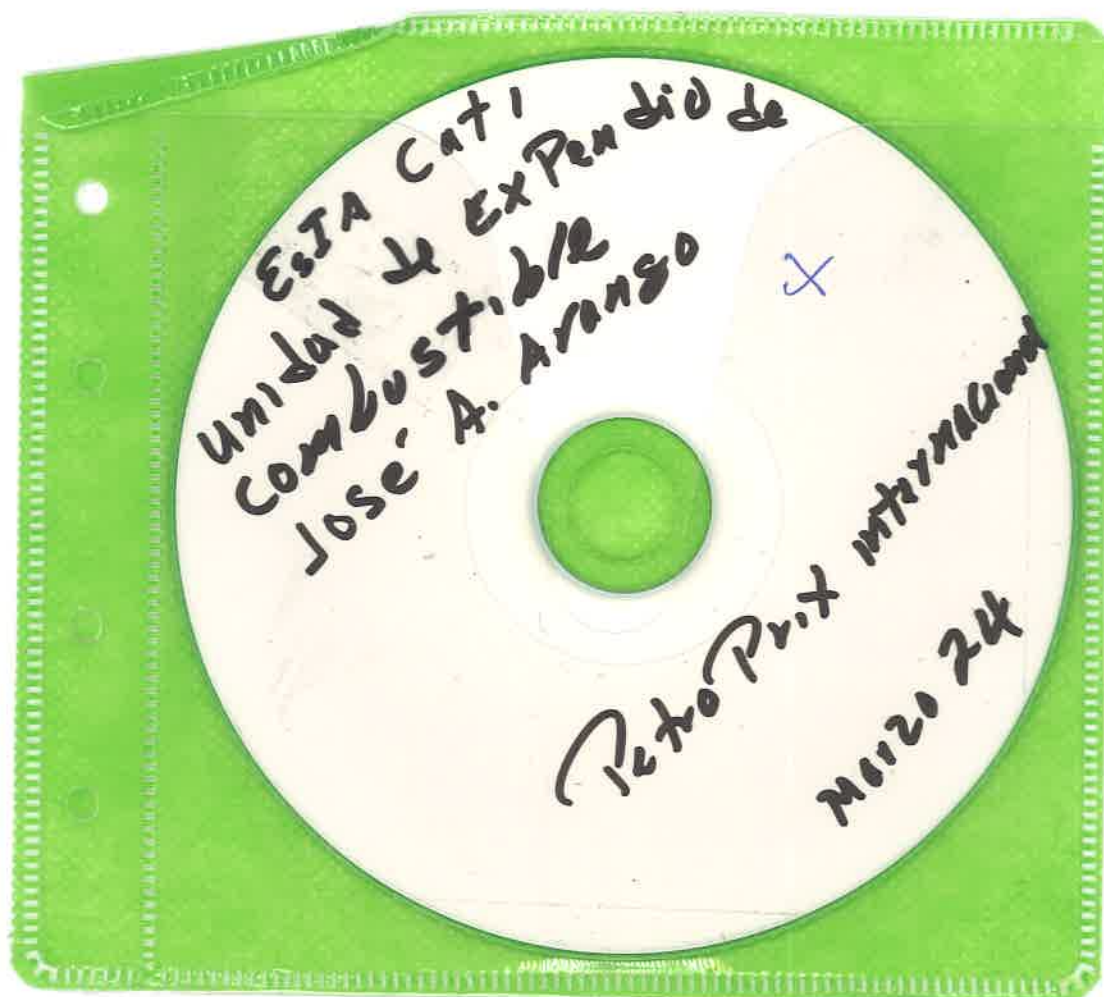 EsIA Cat 1
Unidad de Expendio de
Combustible
José A. Arango
X
PetroPrix internacional
Marzo 24